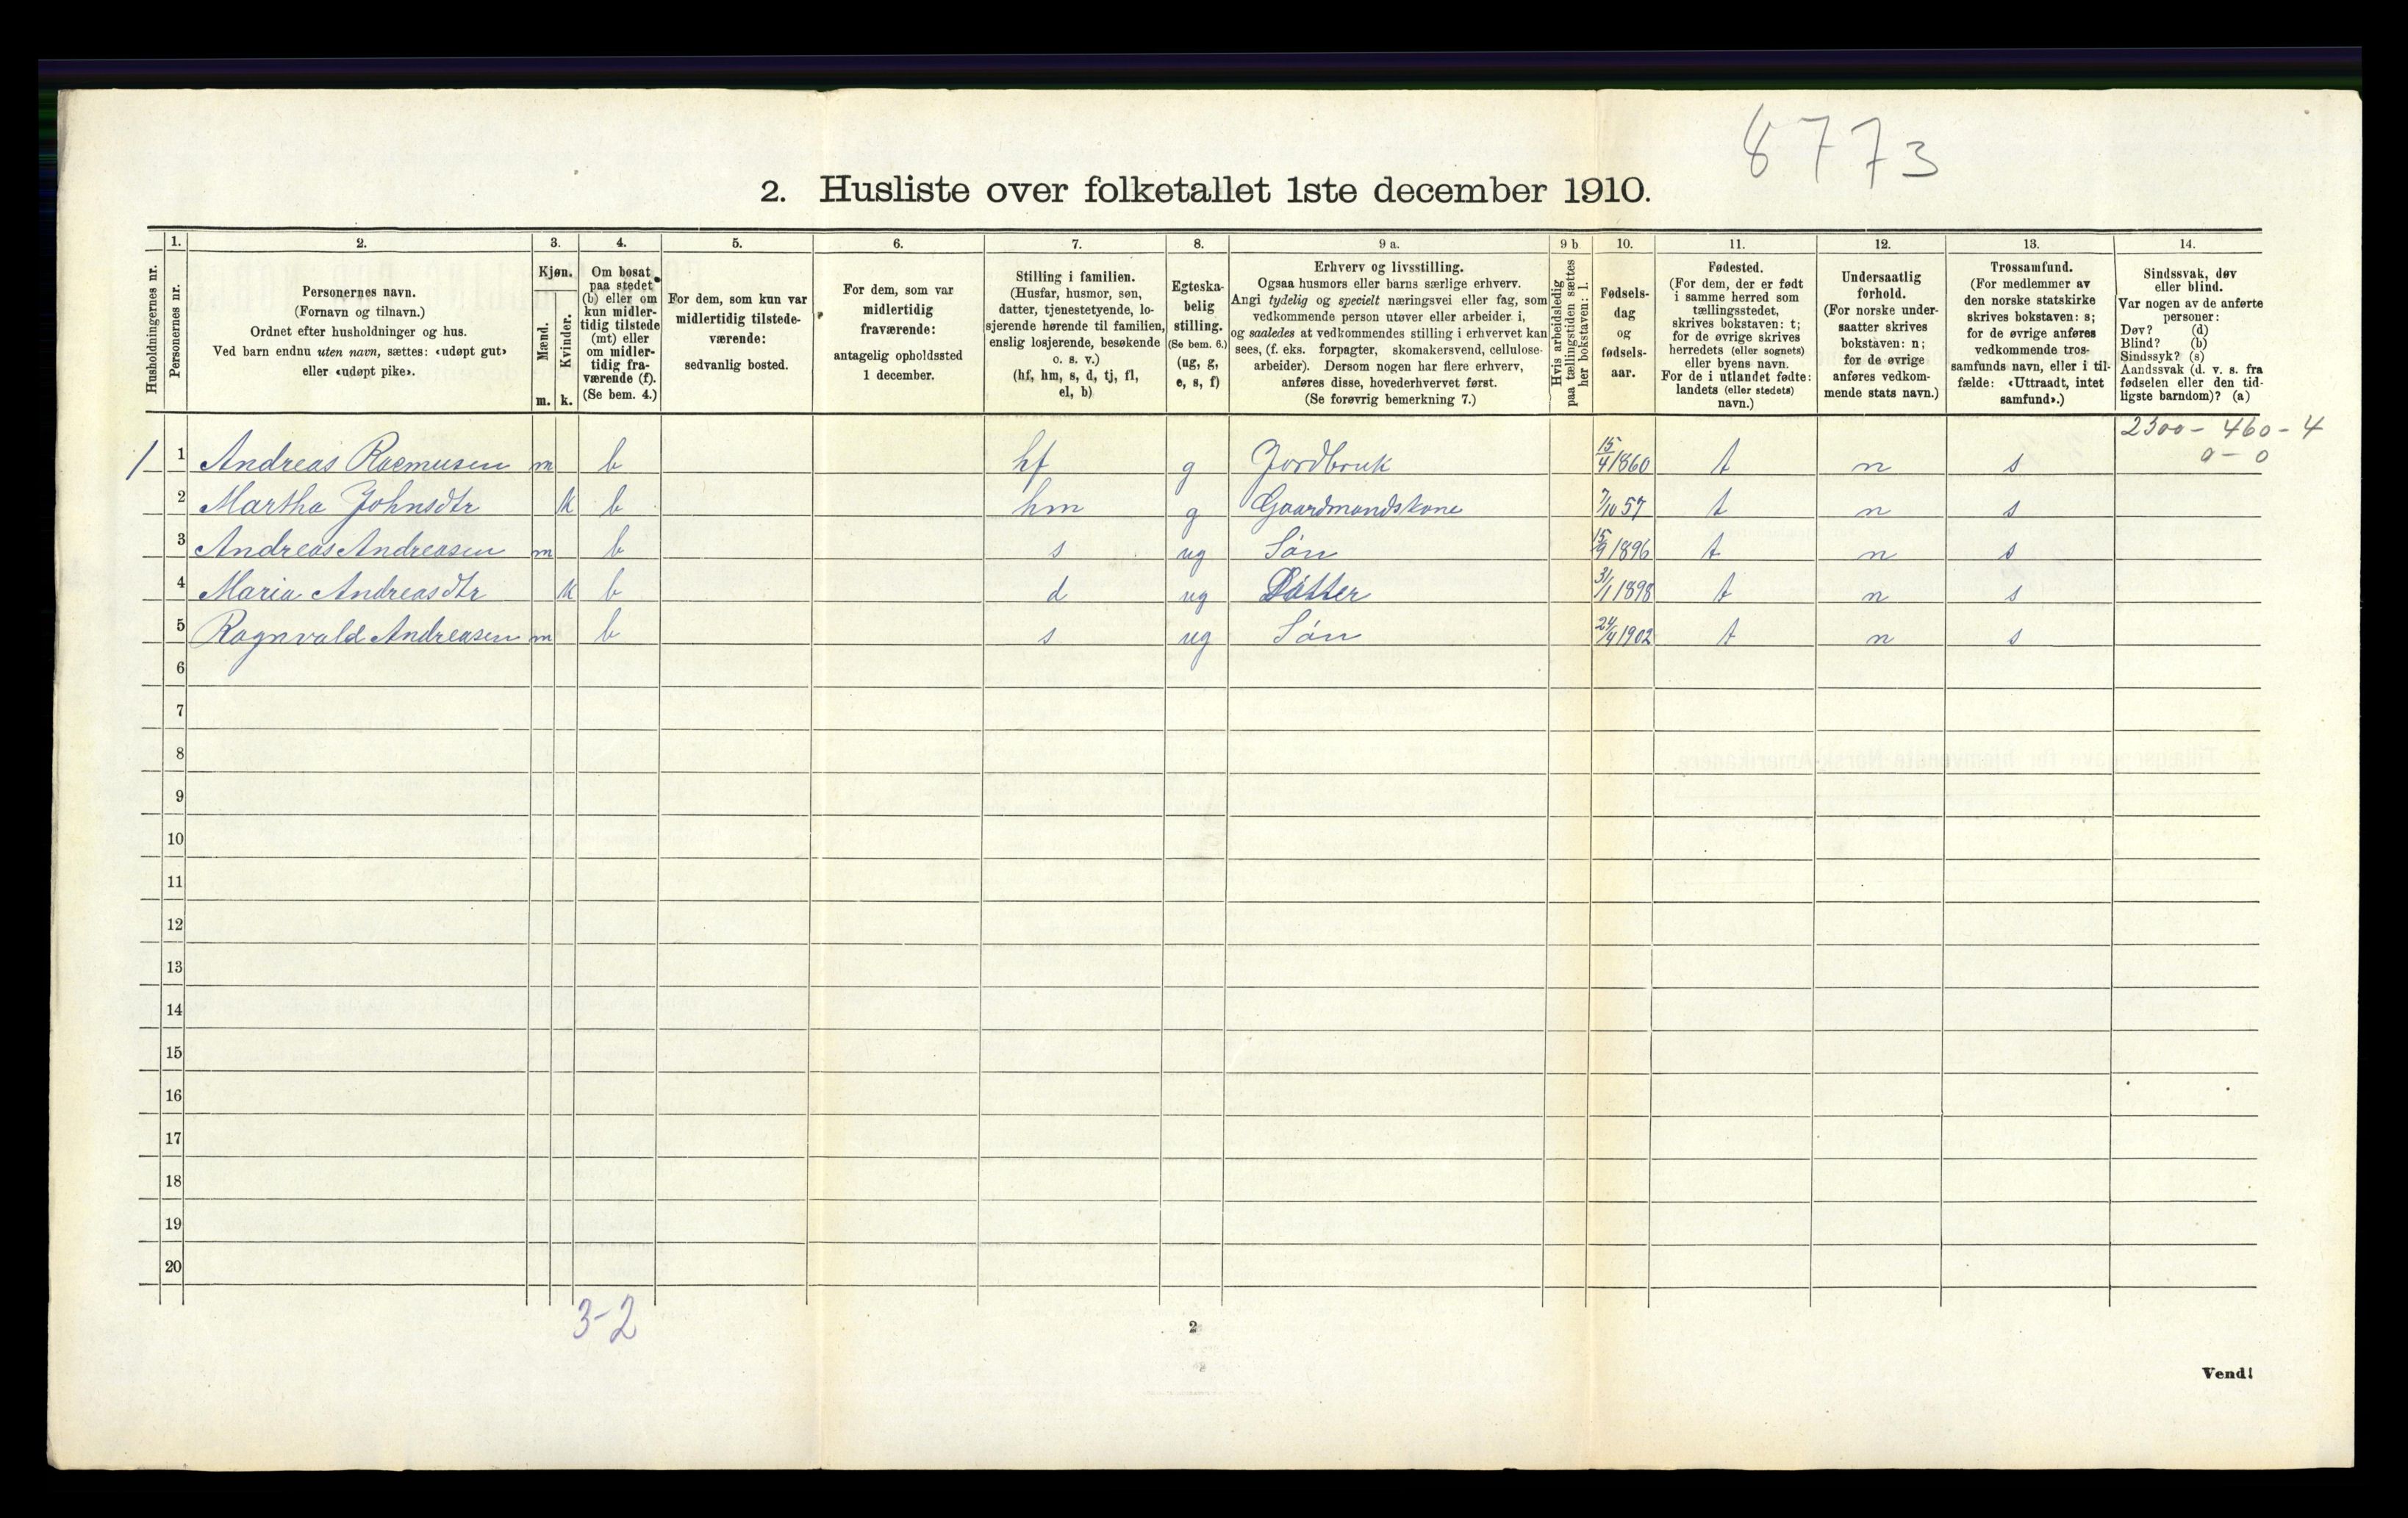 8773
2. Husliste over folketallet 1ste december 1910.
Husholdningernes nr.
1.
Personernes nr.
2.
Personernes navn.
(Fornavn og tilnavn.)
Ordnet efter husholdninger og hus.
Ved barn endnu uten navn, sættes: «udøpt gut»
eller «udøpt pike».
3.
Kjøn.
Mænd.
Kvinder.
m. k.
4.
Om bosat
paa stedet
(b) eller om
kun midler-
tidig tilstede
(mt) eller
om midler-
tidig fra-
værende (f).
(Se bem. 4.)
5.
For dem, som kun var
midlertidig tilstede-
værende:
sedvanlig bosted.
6.
For dem, som var
midlertidig
fraværende:
antagelig opholdssted
1 december.
7.
Stilling i familien.
(Husfar, husmor, søn,
datter, tjenestetyende, lo-
sjerende hørende til familien,
enslig losjerende, besøkende
o. s. v.)
(hf, hm, s, d, tj, fl,
el, b)
8.
Egteska-
belig
stilling.
(Se bem. 6.)
(ug, g,
e, s, f)
9 a.
Erhverv og livsstilling.
Ogsaa husmors eller barns særlige erhverv.
Angi tydelig og specielt næringsvei eller fag, som
vedkommende person utøver eller arbeider i,
og saaledes at vedkommendes stilling i erhvervet kan
sees, (f. eks. forpagter, skomakersvend, cellulose-
arbeider). Dersom nogen har flere erhverv,
anføres disse, hovederhvervet først.
(Se forøvrig bemerkning 7.)
9 b.
Hvis arbeidsledig
paa tællingstiden sættes
her bokstaven: l.
10.
Fødsels-
dag
og
fødsels-
aar.
11.
Fødested.
(For dem, der er født
i samme herred som
tællingsstedet,
skrives bokstaven: t;
for de øvrige skrives
herredets (eller sognets)
eller byens navn.
For de i utlandet fødte:
landets (eller stedets)
navn.)
12.
Undersaatlig
forhold.
(For norske under-
saatter skrives
bokstaven: n;
for de øvrige
anføres vedkom-
mende stats navn.)
13.
Trossamfund.
(For medlemmer av
den norske statskirke
skrives bokstaven: s;
for de øvrige anføres
vedkommende tros-
samfunds navn, eller i til-
fælde: «Uttraadt, intet
samfund».)
14.
Sindssvak, døv
eller blind.
Var nogen av de anførte
personer:
Døv? (d)
Blind? (b)
Sindssyk? (s)
Aandssvak (d. v. s. fra
fødselen eller den tid-
ligste barndom)? (a)
2300 - 460 - 4
0 - 0
1 1 Andreas Rasmusen m b hf g Jordbruk 15/4 1860 t n s
2 Martha Johnsdtr k b hm g Gaardmandskone 7/10 57 t n s
3 Andreas Andreasen m b s ug Søn 15/9 1896 t n s
4 Maria Andreasdtr k b d ug Datter 31/1 1898 t n s
5 Ragnvald Andreasen m b s ug Søn 24/4 1902 t n s
6
7
8
9
10
11
12
13
14
15
16
17
18
19
20
3-2
2
Vend!